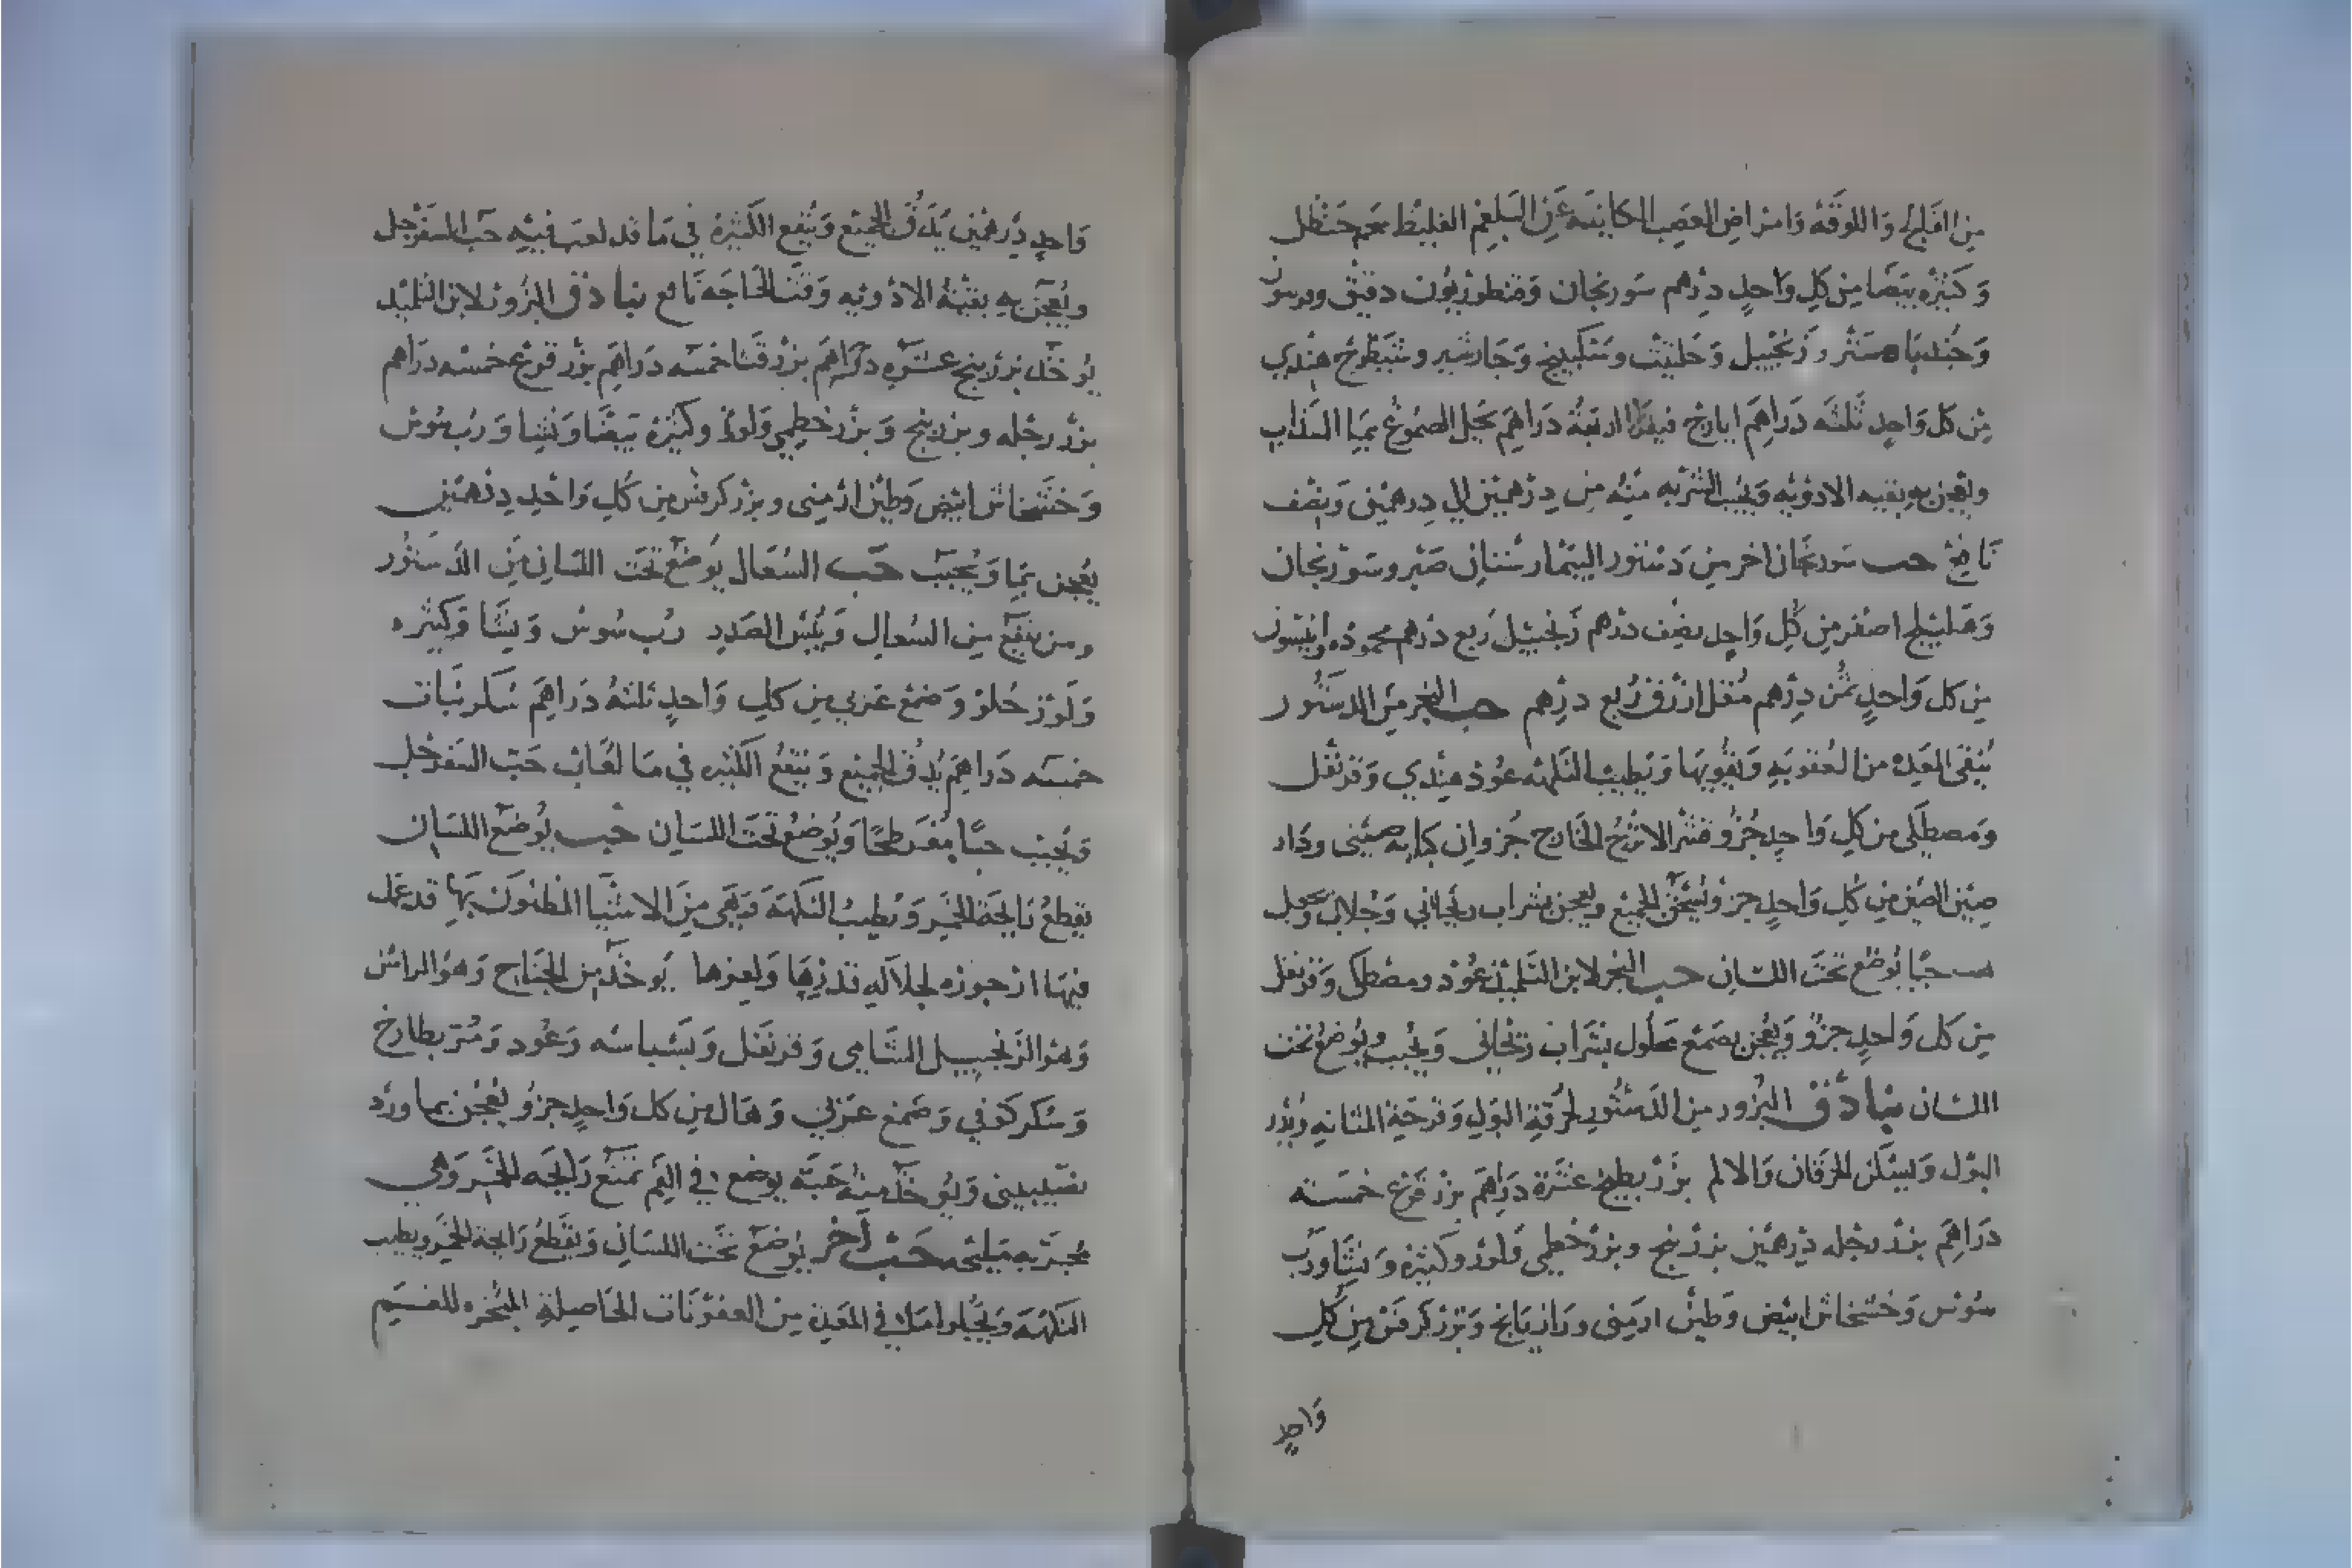 من الفالج واللوقه وامراض العصب الكاينه عن البلغم الغليظ شحم حنظل
وكثيره بيضا من كل واحد درهم سورنجان وقنطوريون دقيق
وجندبادستر وزنجبيل وحلتيت وسكبينج وجاوشير وشيطرج هندي
من كل واحد ثلثه دراهم ايارج فيقرا اربعة دراهم تحل الصموغ بما السذاب
ويعجن به بقيه الادويه ويحبب الشربه منه من درهمين الى درهمين ونصف
نافع حب سورنجان اخر من دستور البيمارستان صبر وسورنجان
وهليلج اصفر من كل واحد نصف درهم زنجبيل ربع درهم محموده وانيسون
من كل واحد ثمن درهم مقل ازرق ربع درهم حب البخر من الدستور
ينقى المعده من العفونه ويقويها ويطيب النكهه عود هندي وقرنفل
ومصطكى من كل واحد جزو قشر الاترج الخارج جزوان كبابه صيني ودار
صيني الصين من كل واحد جزو يسحق الجميع ويعجن بشراب ريحاني وجلاب ويعمل
حبا يوضع تحت اللسان حب البخر لابن التلميذ عود ومصطكى وقرنفل
من كل واحد جزو ويعجن بصمغ محلول بشراب ريحاني ويحبب ويوضع تحت
اللسان بنادق البزور من الدستور لحرقة البول وقرحة المثانه
البول ويسكن الحرقان والالم بزر بطيخ عشرة دراهم بزر قرع خمسه
دراهم بزر رجله درهمين بزر بنج وبزر خطمي ولوز وكثيره ونشا ورب
سوس وخشخاش ابيض وطين ارميني ورازيانج وبزر كرفس من كل
واحد
واحد درهمين يدق الجميع وينقع الكثيرة في ما قد لعب فيه حب السفرجل
ويعجن به بقية الادويه وقت الحاجه نافع بنادق البزور لابن التلميذ
يوخذ بزر بنج عشره دراهم بزر قثا خمسه دراهم بزر قرع خمسه دراهم
بزر رجله وبزر بنج وبزر خطمي ولوز وكثيرة بيضا ونشا ورب سوس
وخشخاش ابيض وطين ارميني وبزر كرفس من كل واحد درهمين
يعجن بما ويحبب حب السعال يوضع تحت اللسان من الدستور
ومن ينفع من السعال ويبس الصدر رب سوس ونشا وكثيره
ولوز حلو وصمغ عربي من كل واحد ثلثه دراهم سكر نبات
خمسه دراهم يدق الجميع وينقع الكثيره في ما لعاب حب السفرجل
ويحبب حبا مفرطحا ويوضع تحت اللسان حب يوضع اللسان
يقطع رايحة الخمر ويطيب النكهه وهى من الاشيا المظنون بها قد عمل
فيها ارجوزه لجلاله قدرها ولعزها يوخذ من الجناح وهو الراسن
وهو الزنجبيل الشامي وقرنفل وبسباسه وعود
وسكر كوفي وصمغ عربي وهال من كل واحد جزو يعجن بما ورد
نصيبيني ويوخذ منه حبه يوضع في الفم تمنع رايحه الخمر وهي
مجربه مليحه حب اخر يوضع تحت اللسان ويقطع رايحة الخمر ويطيب
النكهه في المعدة من العفونات الحاصلة المبخره للفم